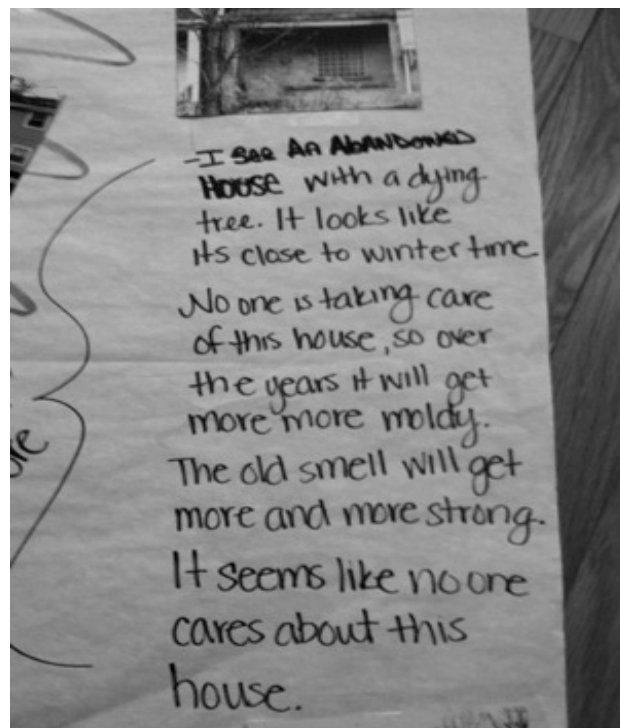 -I SEE AN ABANDONED
HOUSE with a dying
tree. It looks like
its close to winter time
No one is taking care
of this house, so over
the years it will get
more more moldy.
The old smell will get
more and more strong.
It seems like no one
cares about this
house.